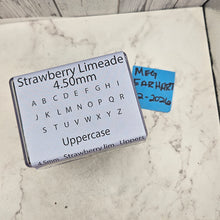 Strawberry Limeade
4.50mm
A B C D E F G H I
J K L M N O P Q R
S T U V W X Y Z
Uppercase
4.5mm Strawberry lim Uppers
MEG
EARHART
2-2026